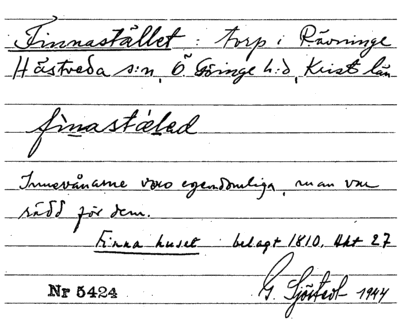 Finnastället : torp i Rävninge
Hästveda s:n, Ö Göinge h:d, Krist län
finastæled
Innevånarne voro egendomliga, man var
rädd för dem.
Finna huset belagt 1810. Akt 27
Nr 5424 G. Sjöstedt 1944